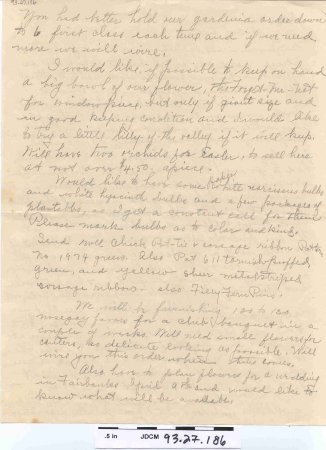 93.27.186
You had better hold our gardenia order down
to 6 first class each time and if we need
more we will wire.
I would like if possible to keep on hand
a big bowl of our flower, the Forget-Me-Not
for window, but only if giant size and
in good keeping condition and would like
to try a little lily of the valley if it will keep.
Will have two orchids for Easter, to sell here
at not over $4.50 apiece.
Would like to have some paper white narcissus bulbs
and white hyacinth bulbs and a few packages of
plantabbs, as I get a constant call for them.
Please mark bulbs as to color and kind.
Send roll Chick Pat-tis corsage ribbon Pat
No. 1974 green. Also Pat 611 puffed
green, and yellow sheer metal striped
corsage ribbon. also Fiery Fern Pins.
We will be furnishing 100 to 150
nosegay favors for a club banquet in a
couple of weeks. Will need small flowers for
centers, as delicate looking as possible. Will
wire you this order when time comes.
Also have to plan flowers for a wedding
in Fairbanks April 9th and would like to
know what will be available.
.5 in
JDCM
93.27.186